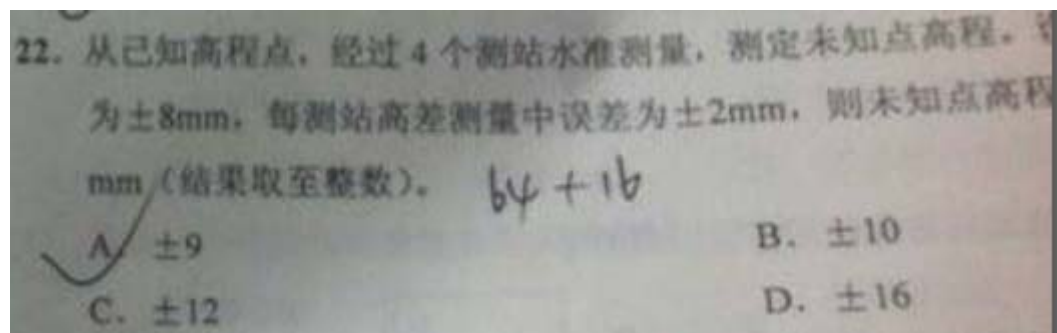 22. 从已知高程点，经过4个测站水准测量，测定未知点高程。
为±8mm，每测站高差测量中误差为±2mm，则未知点高程
mm（结果取至整数）。 64+16
A. ±9
B. ±10
C. ±12
D. ±16